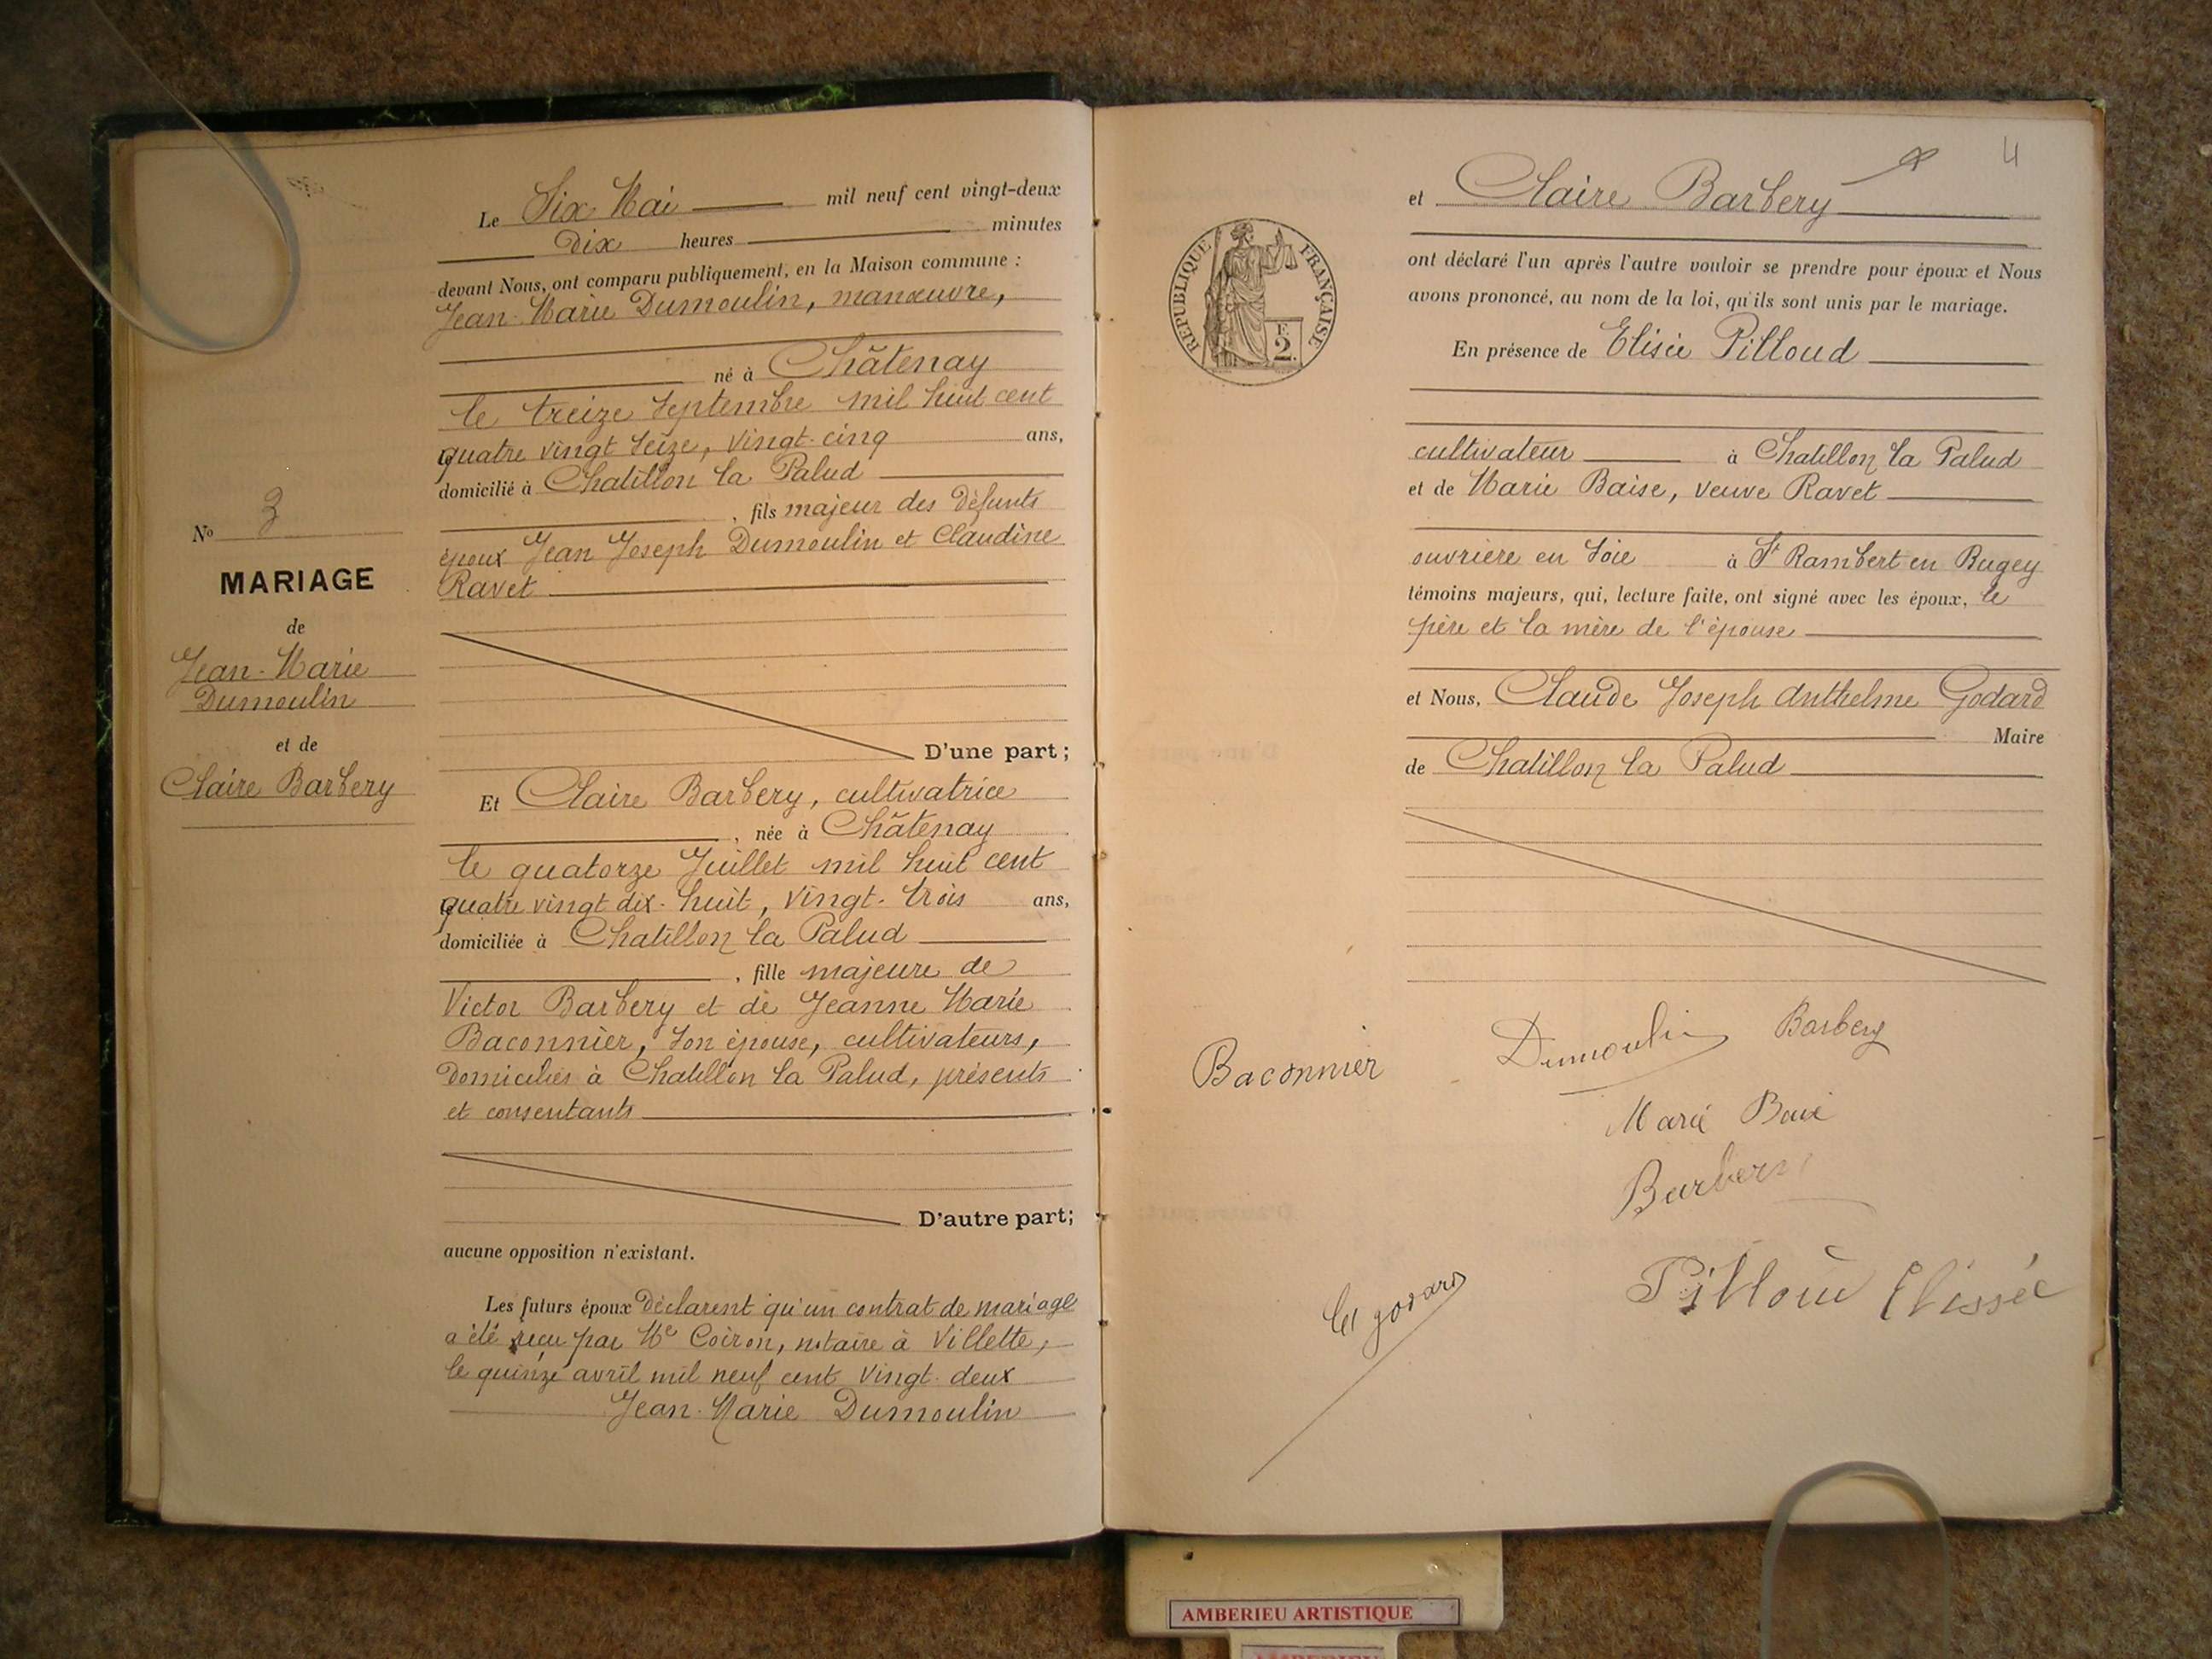 N° 3
MARIAGE
de
Jean-Marie
Dumoulin
et de
Claire Barbery
Le Six Mai mil neuf cent vingt-deux
Dix heures minutes
devant Nous, ont comparu publiquement, en la Maison commune :
Jean-Marie Dumoulin, manœuvre,
né à Châtenay
le treize Septembre mil huit cent
quatre vingt seize, vingt-cinq ans,
domicilié à Chatillon la Palud
, fils majeur des défunts
époux Jean Joseph Dumoulin et Claudine
Ravet
D'une part ;
Et Claire Barbery, cultivatrice
, née à Châtenay
le quatorze Juillet mil huit cent
quatre vingt dix-huit, vingt-trois ans,
domiciliée à Chatillon la Palud
, fille majeure de
Victor Barbery et de Jeanne Marie
Baconnier, son épouse, cultivateurs,
domiciliés à Chatillon la Palud, présents
et consentants
D'autre part;
aucune opposition n'existant.
Les futurs époux déclarent qu'un contrat de mariage
a été reçu par Me Coiron, notaire à Villette,
le quinze avril mil neuf cent vingt-deux
Jean-Marie Dumoulin
4
et Claire Barbery
REPUBLIQUE FRANÇAISE
F.
2.
ont déclaré l'un après l'autre vouloir se prendre pour époux et Nous
avons prononcé, au nom de la loi, qu'ils sont unis par le mariage.
En présence de Elisée Pilloud
cultivateur à Chatillon la Palud
et de Marie Baise, veuve Ravet
ouvrière en soie à St Rambert en Bugey
témoins majeurs, qui, lecture faite, ont signé avec les époux, le
père et la mère de l'épouse
et Nous, Claude Joseph Anthelme Godard
Maire
de Chatillon la Palud
Dumoulin Barbery
Baconnier
Marie
Barbery
godard
Elissée
AMBERIEU ARTISTIQUE
AMBERIEU